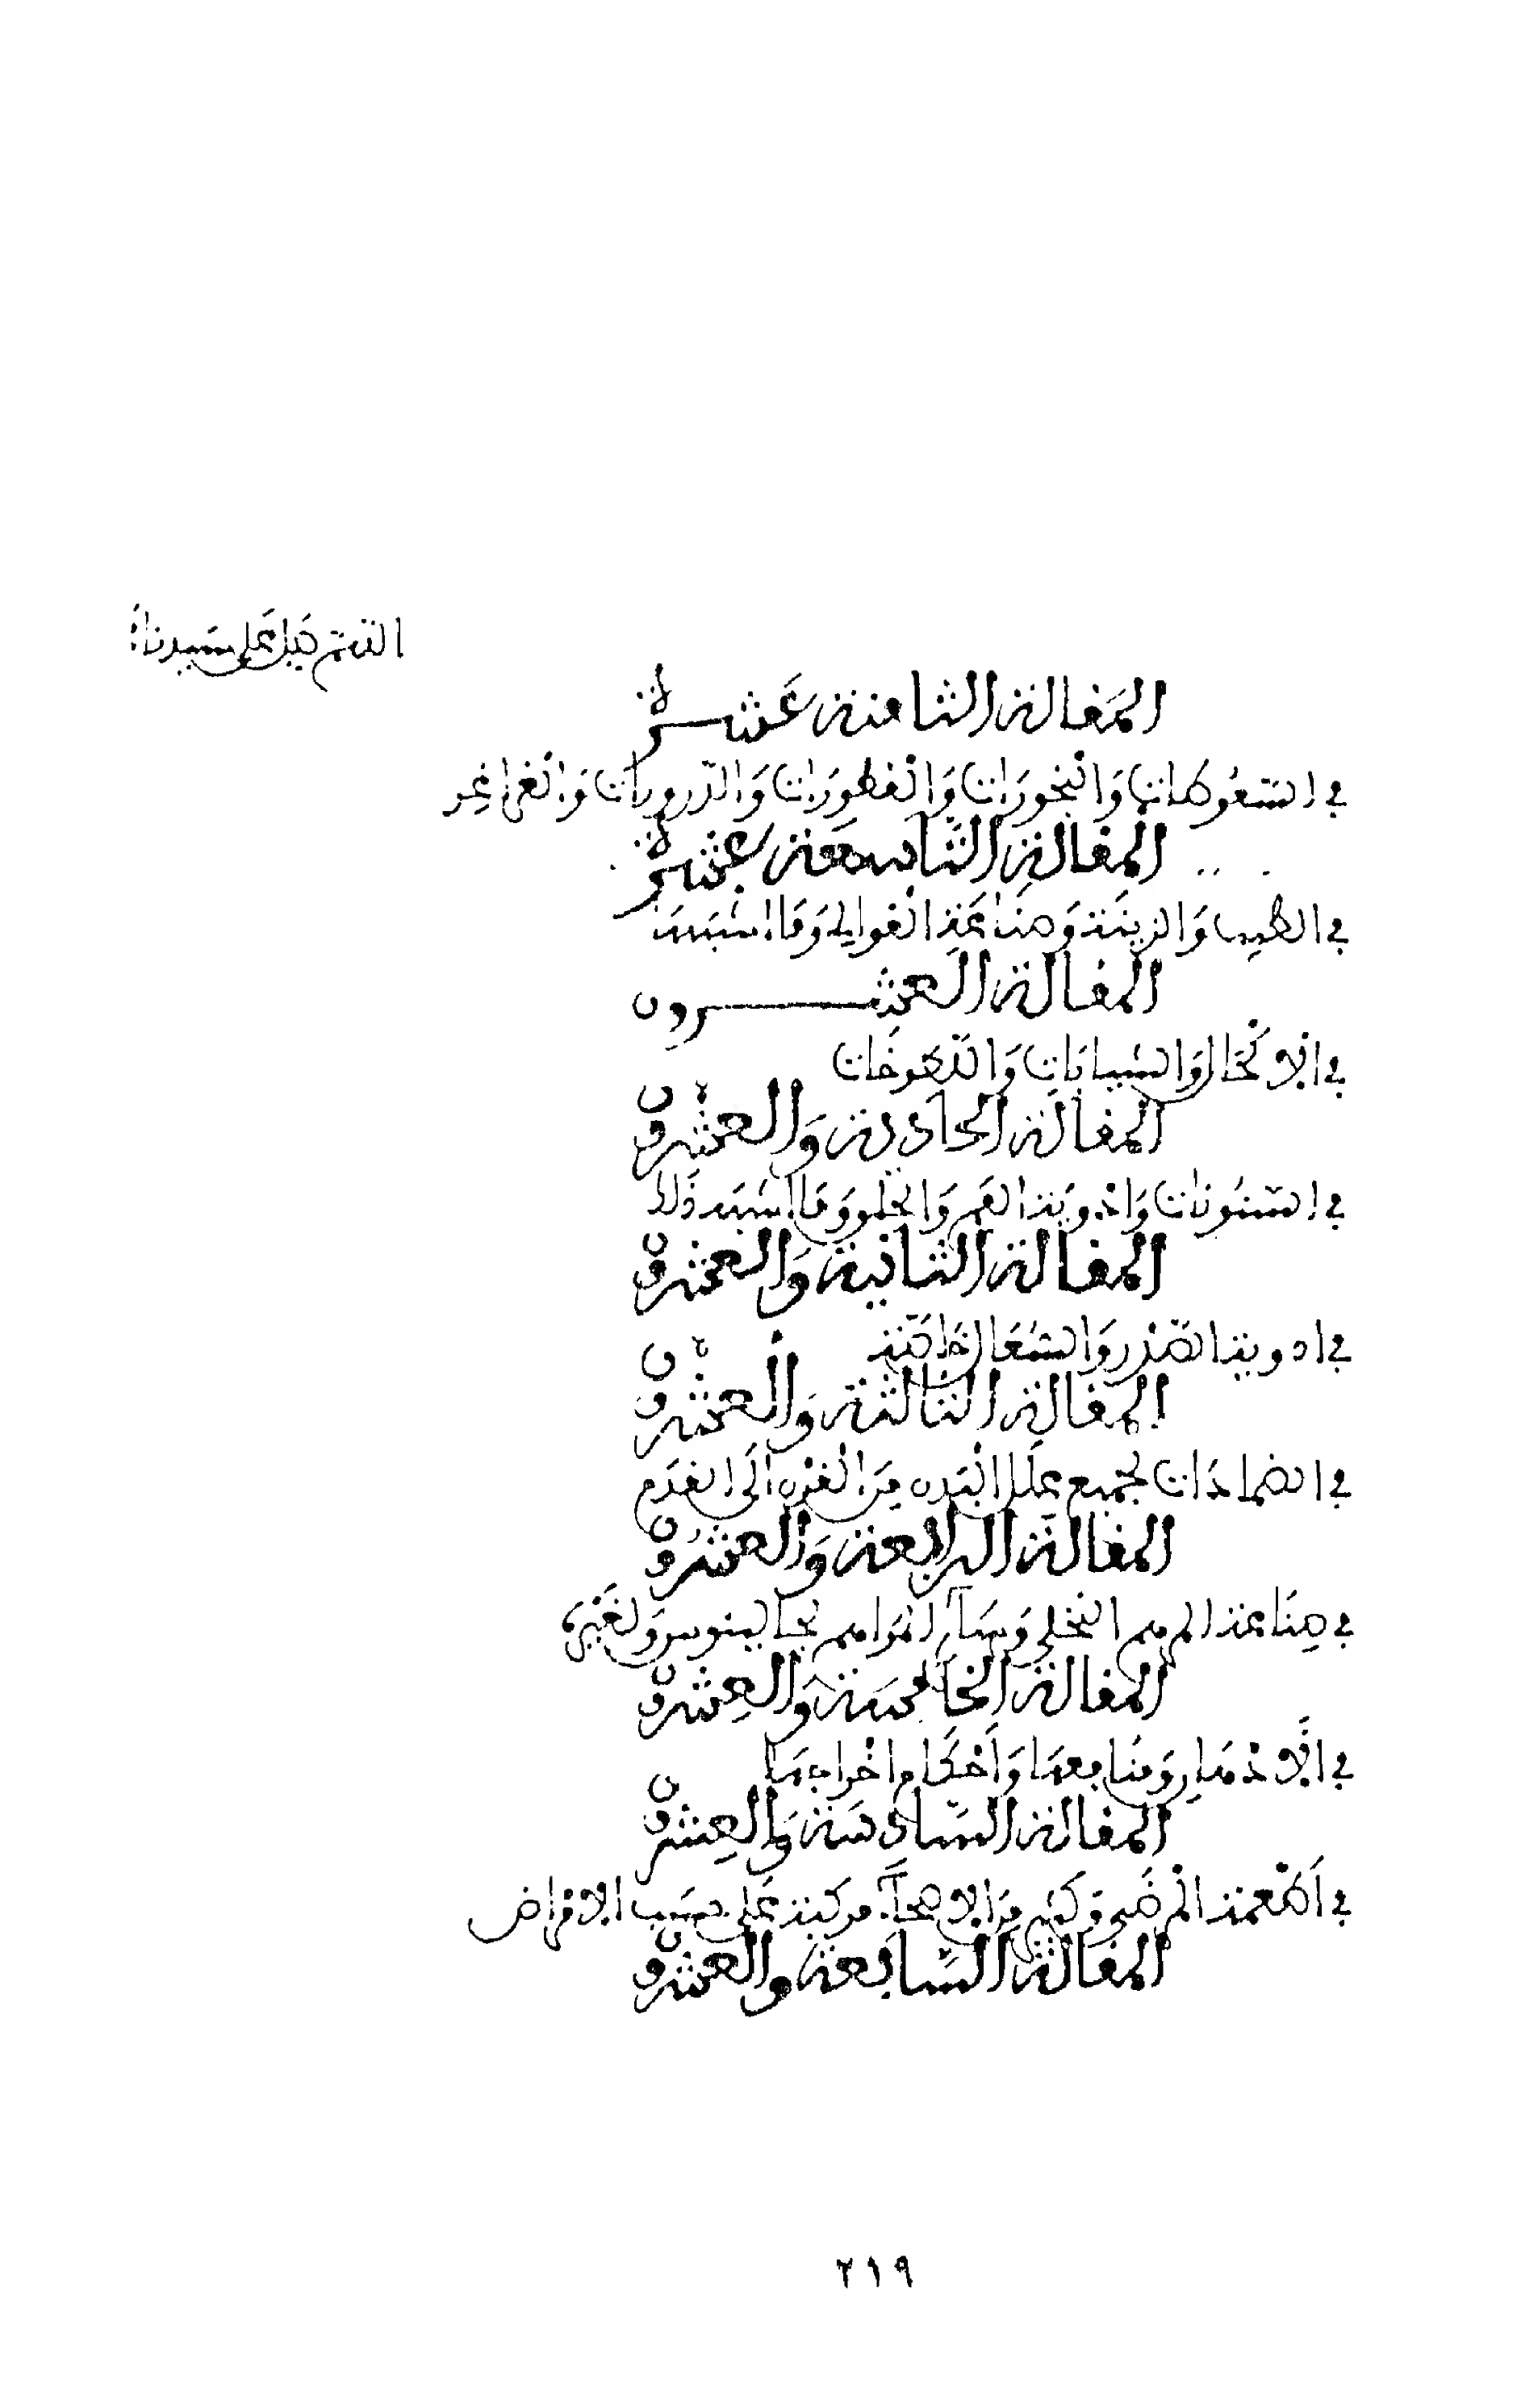 اللهم صل على سيدنا
المقالة الثامنة عشرة
في السعوطات والبخورات والقطورات والذرورات والغراغر
المقالة التاسعة عشرة
في الطيب والزينة وصناعة الغوالي وما اشبهها
المقالة العشرون
في الاكحال والشيافات واللعوخات
المقالة الحادية والعشرون
في السنونات وادوية الفم والحلق وما اشبه ذلك
المقالة الثانية والعشرون
في ادوية الصدر والسعال خاصة
المقالة الثالثة والعشرون
في الضمادات لجميع علل البدن من القرن الى القدم
المقالة الرابعة والعشرون
في صناعة المرهم النخلي وسائر المراهم لجالينوس ولغيره
المقالة الخامسة والعشرون
في الادهان ومنافعها واحكام اخراجها
المقالة السادسة والعشرون
في اطعمة المرضى وكثير من الاصحاء مركبة على حسب الامراض
المقالة السابعة والعشرون
٢١٩